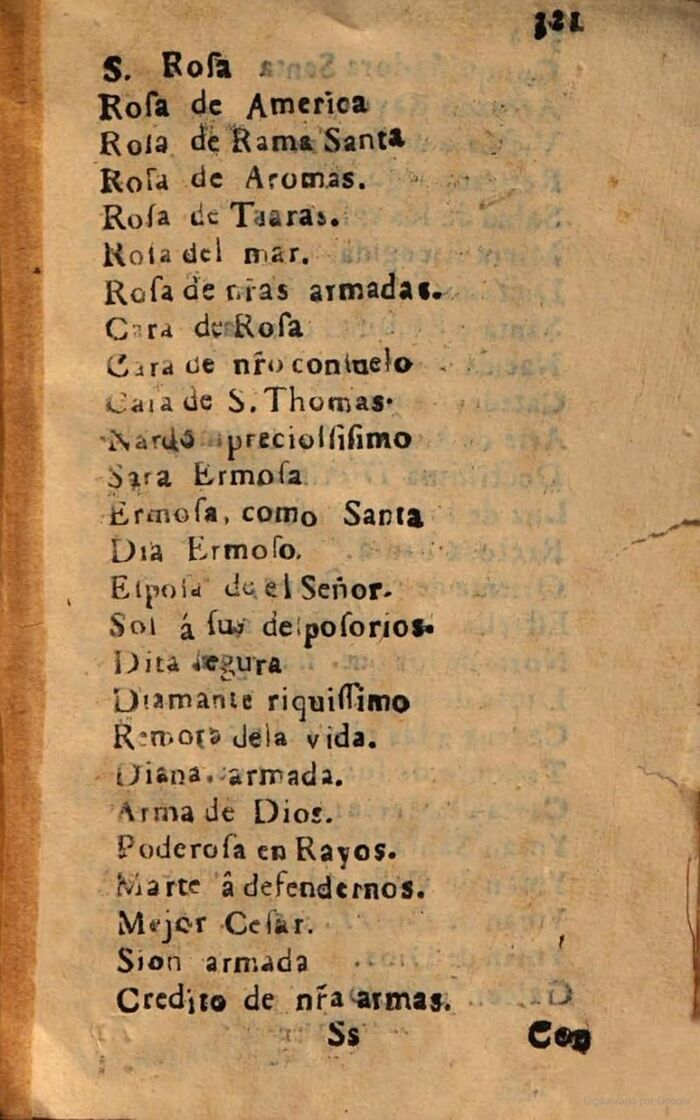 321
S. Roſa
Roſa de America
Roſa de Rama Santa
Roſa de Aromas.
Roſa de Taaras.
Roſa del mar.
Roſa de nr̃as armadas.
Cara de Roſa
Cara de nr̃o conſuelo
Cara de S. Thomas.
Nardo precioſſiſimo
Sara Ermoſa
Ermoſa, como Santa
Dia Ermoſo.
Eſpoſa de el Señor.
Sol á ſus deſpoſorios.
Dita ſegura
Diamante riquiſſimo
Remora dela vida.
Diana armada.
Arma de Dios.
Poderoſa en Rayos.
Marte â defendernos.
Mejor Ceſar.
Sion armada
Credito de nr̃a armas.
Ss Con
Digitalizado por Google